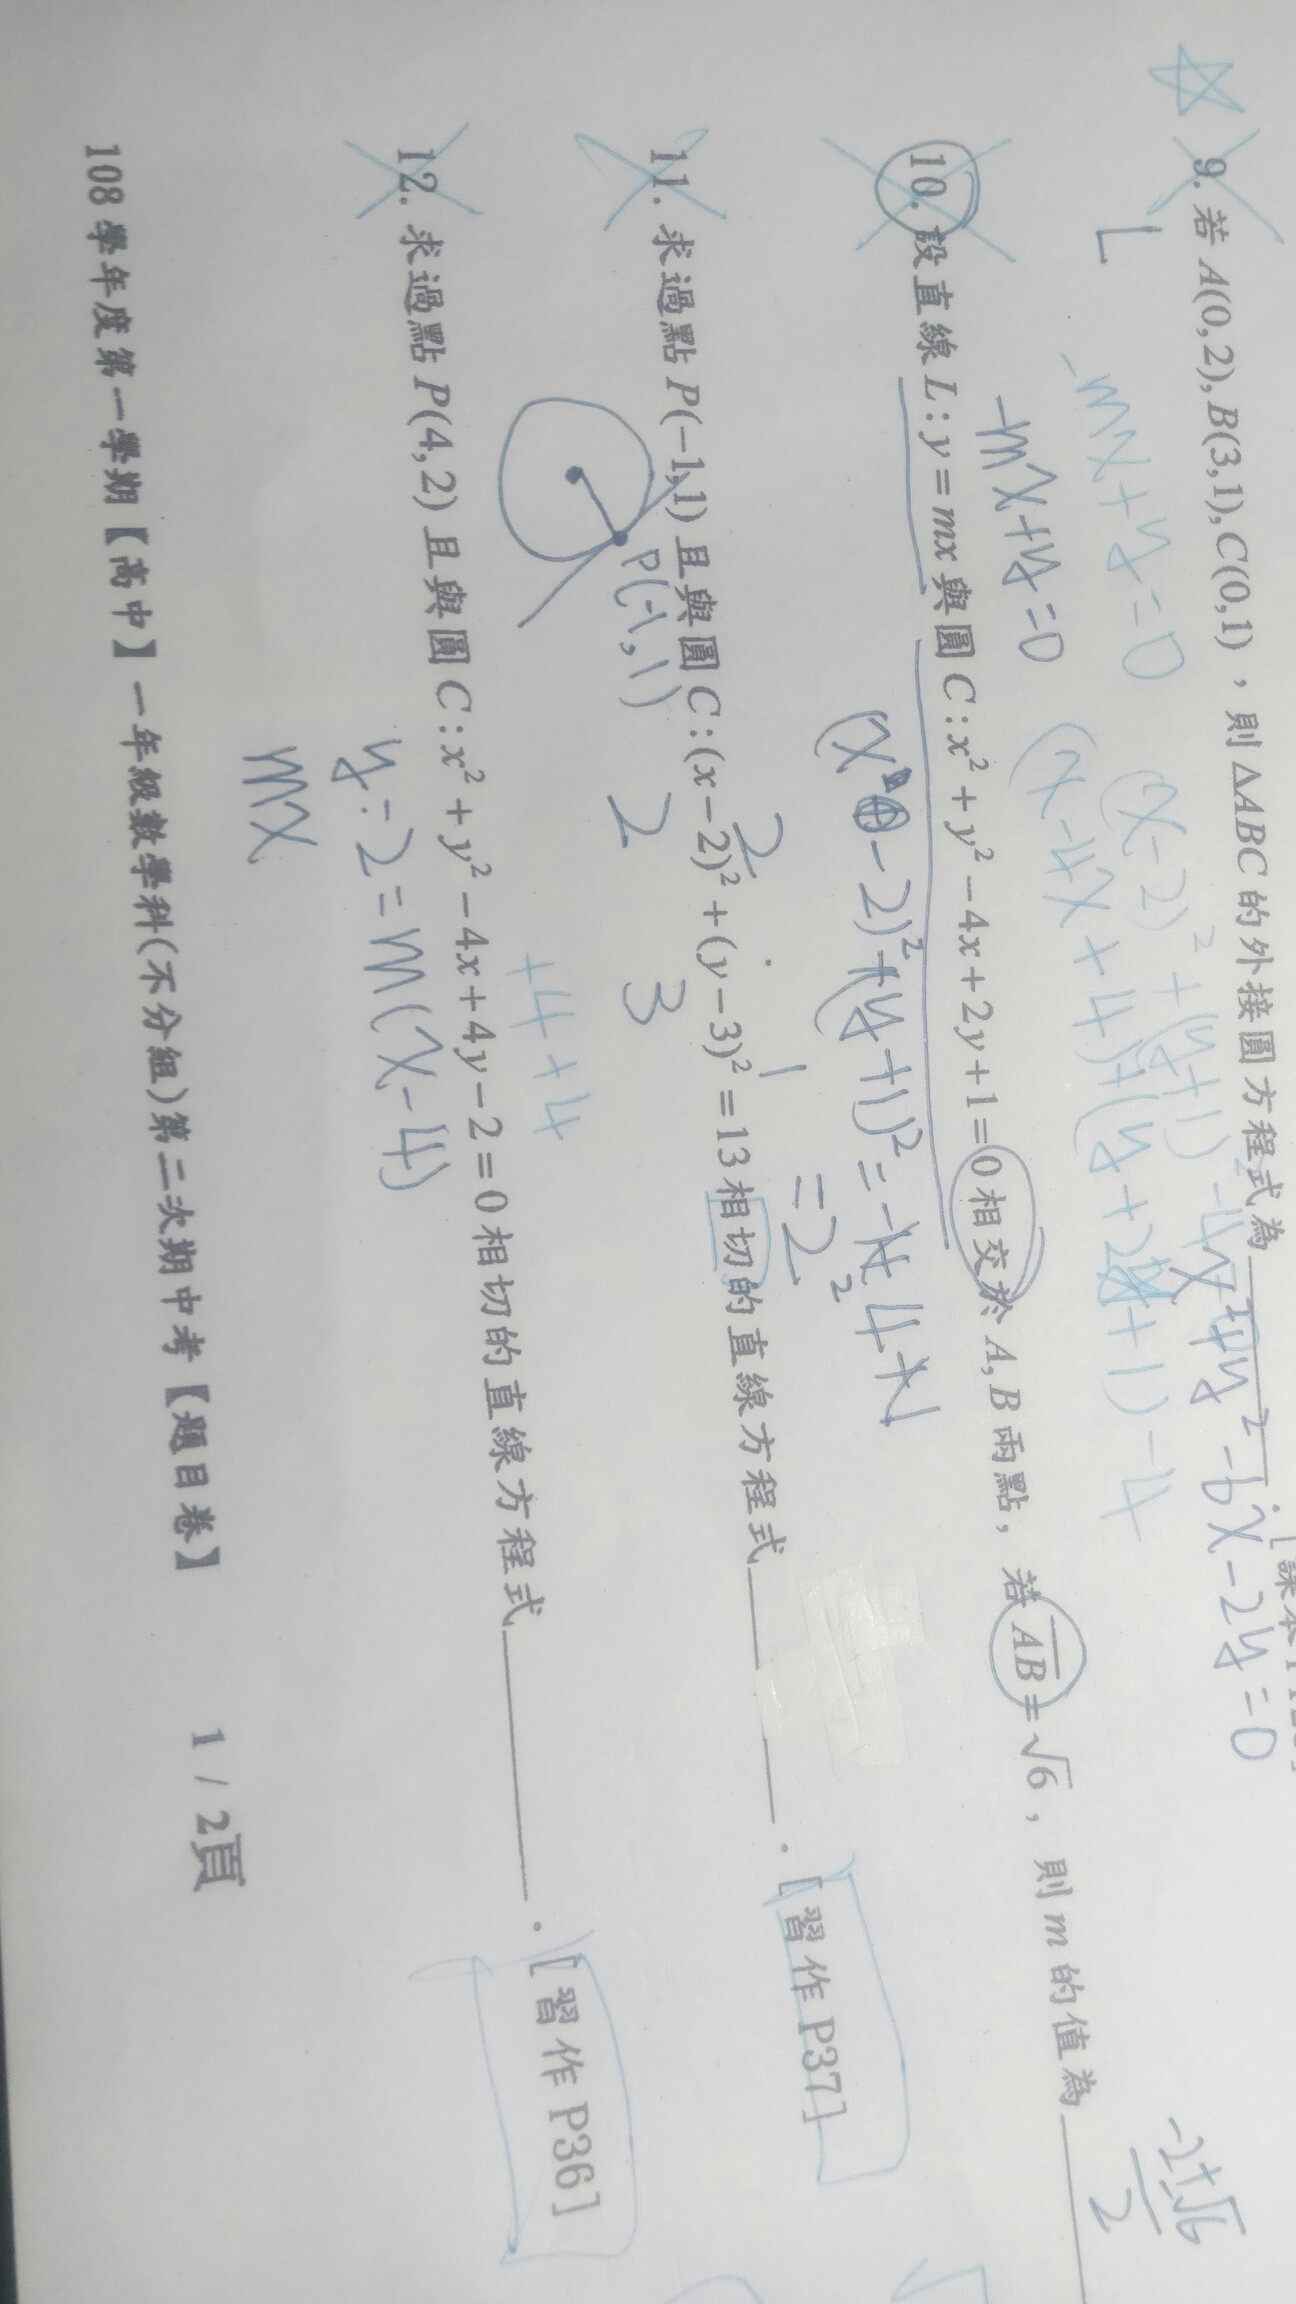 9. 若 A(0,2), B(3,1), C(0,1)，則 △ABC 的外接圓方程式為______．
x²+y²-6x-2y=0
L -mx+y=0 (x-2)²+(y+1)²-4
-mx+y=0 (x-4x+4)+(y+2y+1)-4
10. 設直線 L : y = mx 與圓 C : x² + y² - 4x + 2y + 1 = 0 相交於 A, B 兩點，若 AB = √6，則 m 的值為______
-2±√6/2
(x-2)²+(y+1)²=4
=2²
11. 求過點 P(-1,1) 且與圓 C : (x-2)² + (y-3)² = 13 相切的直線方程式______．[習作 P37]
P(-1,1) 2 3
+4+4
12. 求過點 P(4,2) 且與圓 C : x² + y² - 4x + 4y - 2 = 0 相切的直線方程式______．[習作 P36]
y-2=m(x-4)
mx
108 學年度第一學期【高中】一年級數學科(不分組)第二次期中考【題目卷】 1 / 2頁